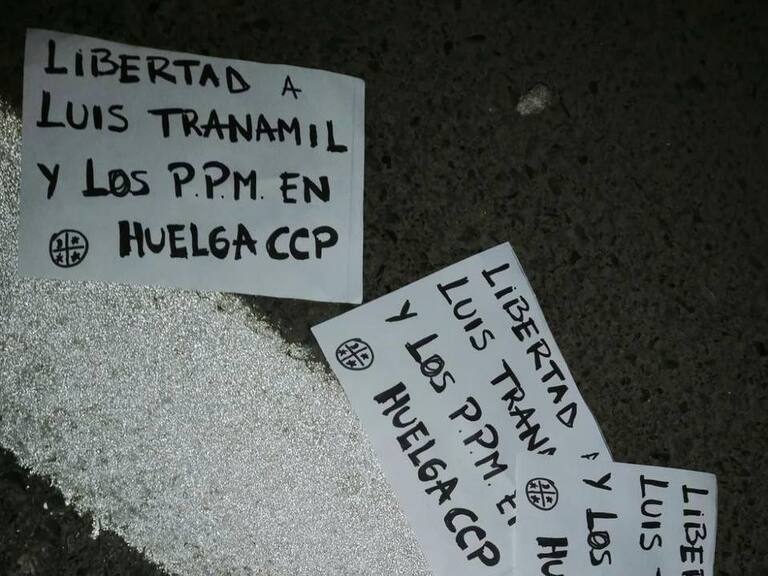 LIBERTAD A
LUIS TRANAMIL
Y LOS P.P.M. EN
HUELGA CCP
LIBERTAD A
LUIS TRAN
Y LOS P.P.M. E
HUELGA CCP
LIBE
LUIS
Y LOS
HU